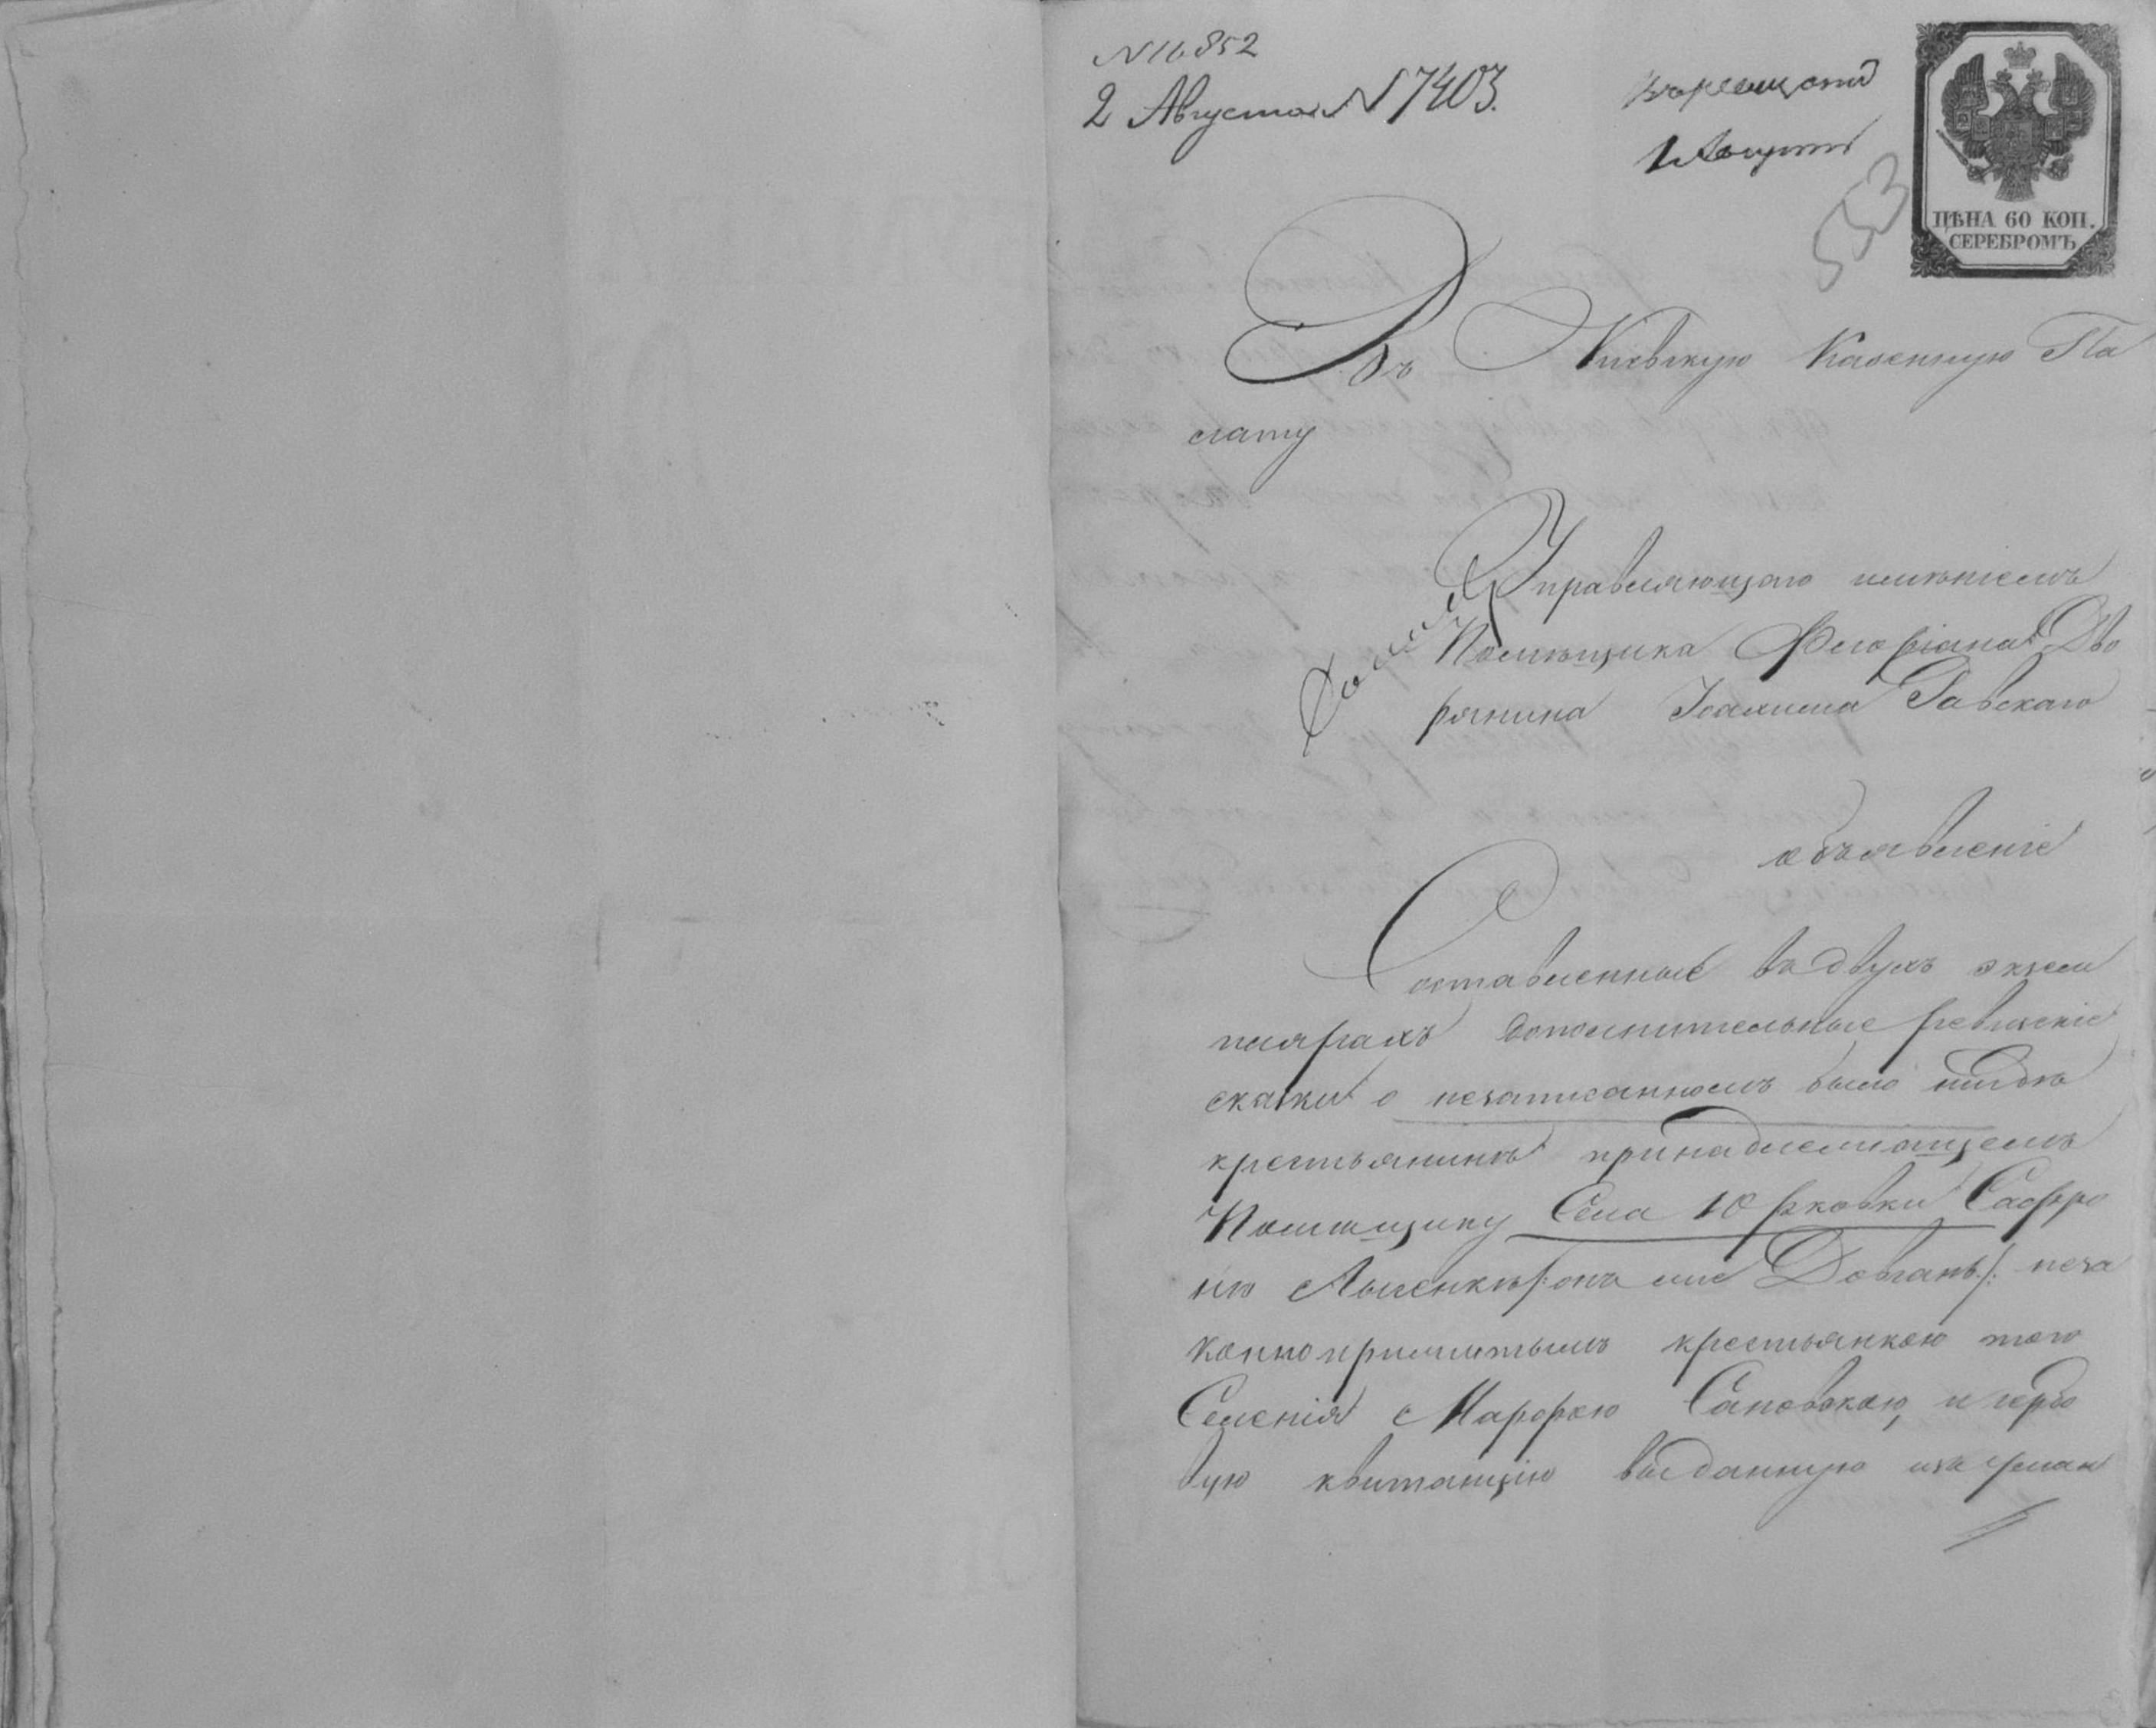 N 16852
2 Августа N 7403.
1 Августа
553
ЦѢНА 60 КОП.
СЕРЕБРОМЪ
Въ Кіевскую Казенную Па
лату
Управляющаго имѣніемъ
Помѣщика Флоріана Дво
рянина Іоахима Равскаго
объявленіе
Составленные въ двухъ экзем
плярахъ дополнительные ревизскіе
сказки о незаписанномъ было нигдѣ
крестьянинѣ принадлежащемъ
Помѣщику Села Юрковки Сафро
ніѣ Лысенкѣ /: онъ же Довгань :/ неза
конноприжитымъ крестьянкою того
Селенія Марфою Сановскою, и гербо
вую квитанцію выданную изъ Уман